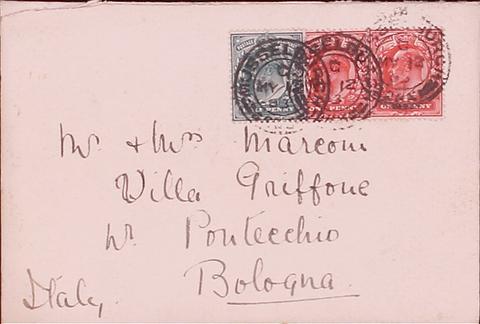 Mr. & Mrs Marconi
Villa Griffone
Nr. Pontecchio
Bologna.
Italy.
PENNY
ONE PENNY
ONE PENNY